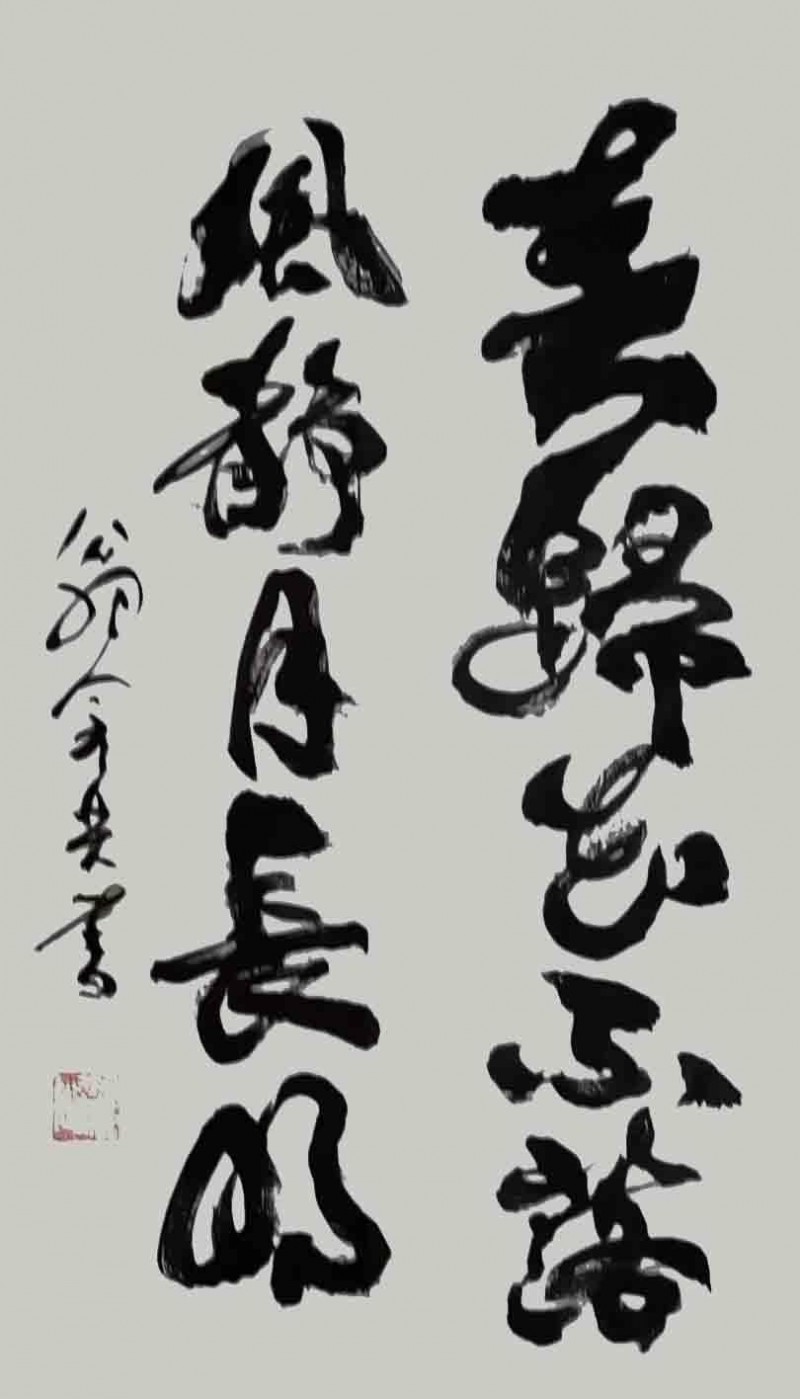 春歸花不落
風靜月長明
書